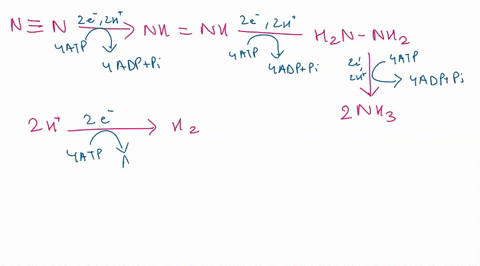 N≡N 2e⁻, 2H⁺ NH = NH 2e⁻, 2H⁺ H₂N-NH₂
4ATP 4ADP+Pi 4ATP 4ADP+Pi 2e⁻, 2H⁺ 4ATP 4ADP+Pi
2NH₃
2H⁺ 2e⁻ H₂
4ATP A